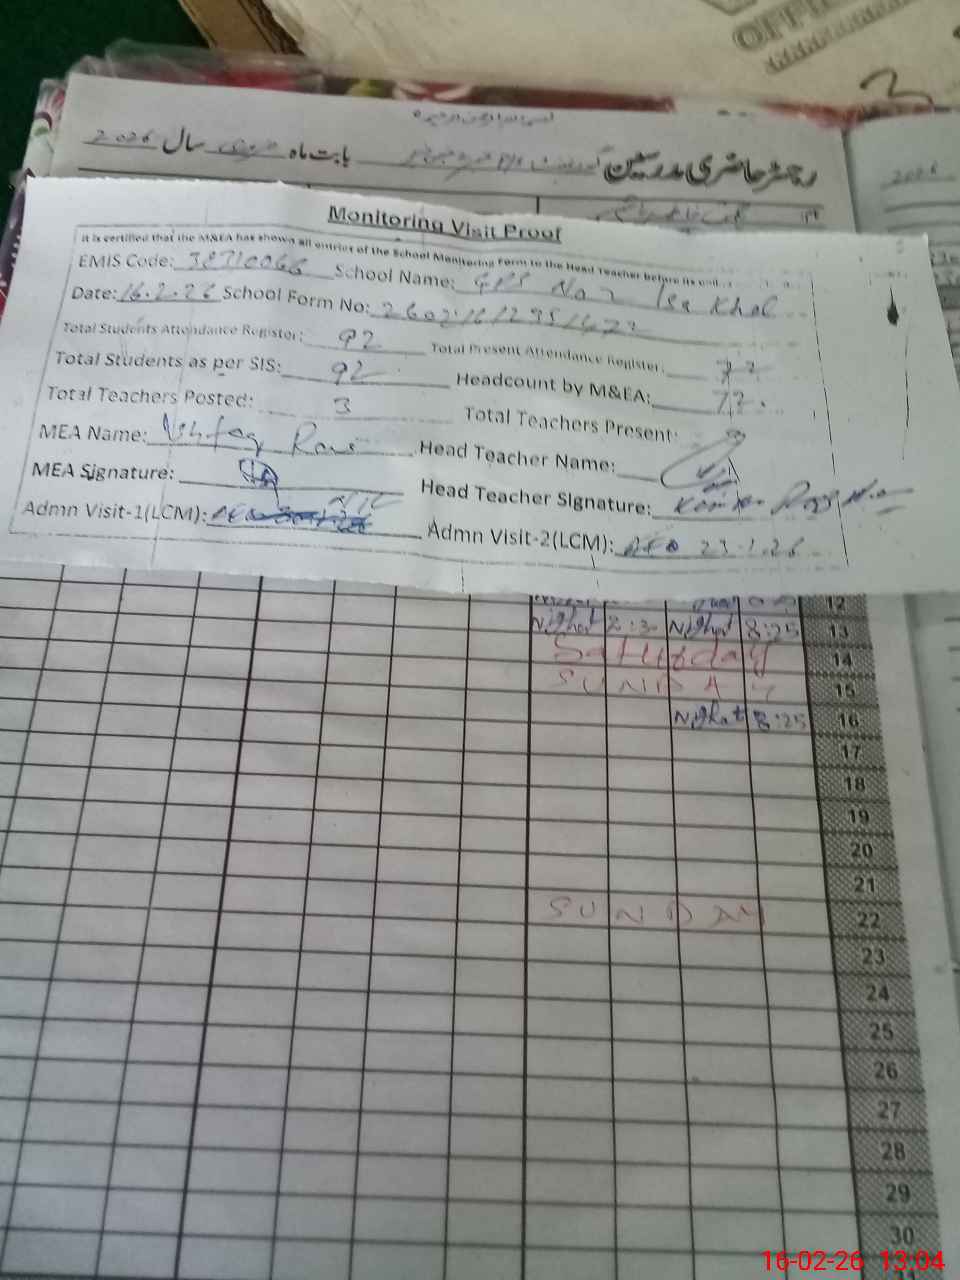 OFFI
رجسٹر حاضری مدرسین بابت ماہ فروری سال 2026
Monitoring Visit Proof
It is certified that the M&EA has shown all entries of the School Monitoring Form to the Head Teacher before its
EMIS Code: 38710066 School Name: GPS No 2 Isa Khel
Date: 16.2.26 School Form No:
Total Students Attendance Register: 92 Total Present Attendance Register: 72
Total Students as per SIS: 92 Headcount by M&EA: 72.
Total Teachers Posted: 3 Total Teachers Present:
MEA Name: Head Teacher Name:
MEA Signature: Head Teacher Signature:
Admn Visit-1(LCM): Admn Visit-2(LCM): AEO 23.1.26
12
Nighat 2:30 Nighat 8:25 13
Saturday 14
SUNDAY 15
Nighat 8:25 16
17
18
19
20
21
SUNDAY 22
23
24
25
26
27
28
29
30
16-02-26 13:04